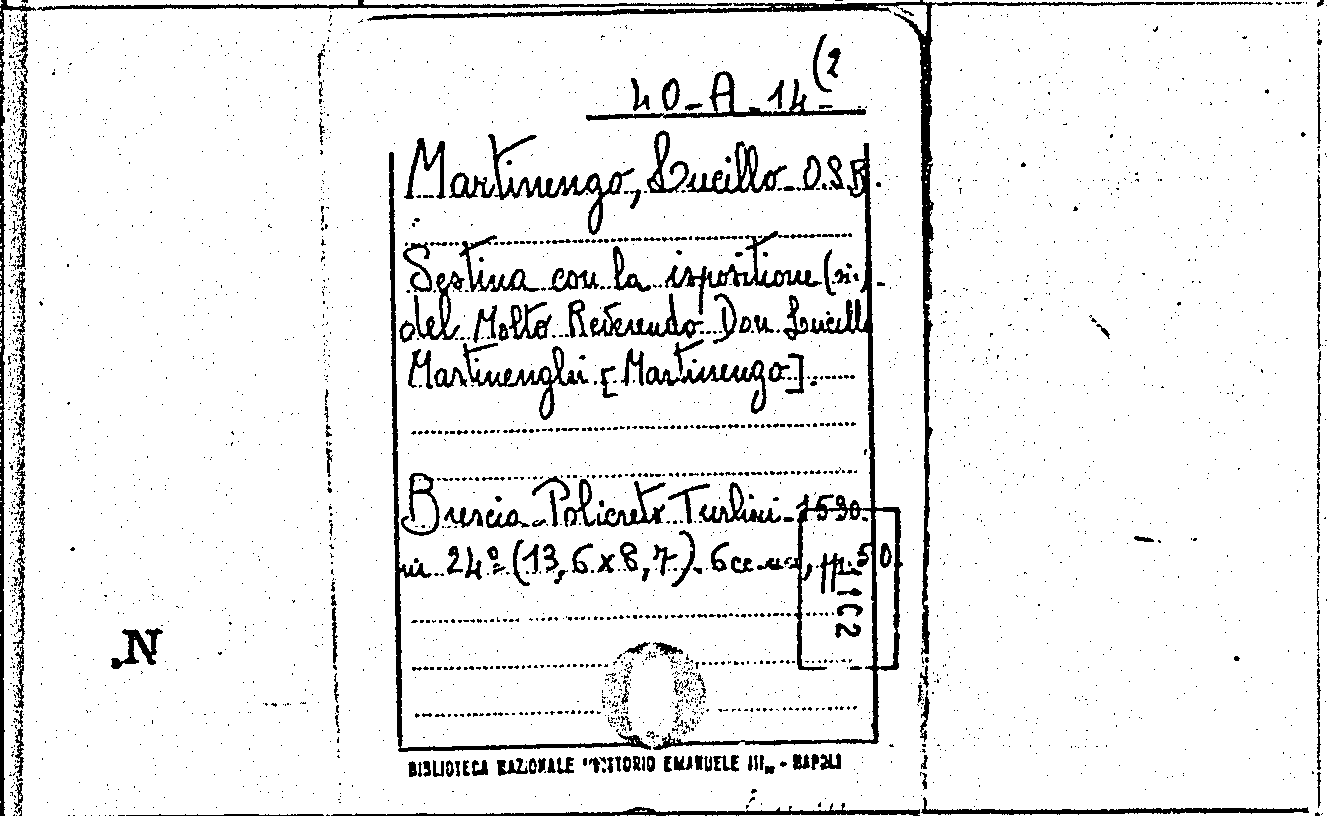 40-A-14(2
Martinengo, Lucillo - O.S.B.
Sestina con la ispositione (sic)
del Molto Reverendo Don Lucillo
Martinenghi [Martinengo].
Brescia - Policreto Turlini - 1590.
in 24º (13,6 x 8,7). 6 cc. , pp. 50.
1102
N.
BIBLIOTECA NAZIONALE "VITTORIO EMANUELE III„ - NAPOLI